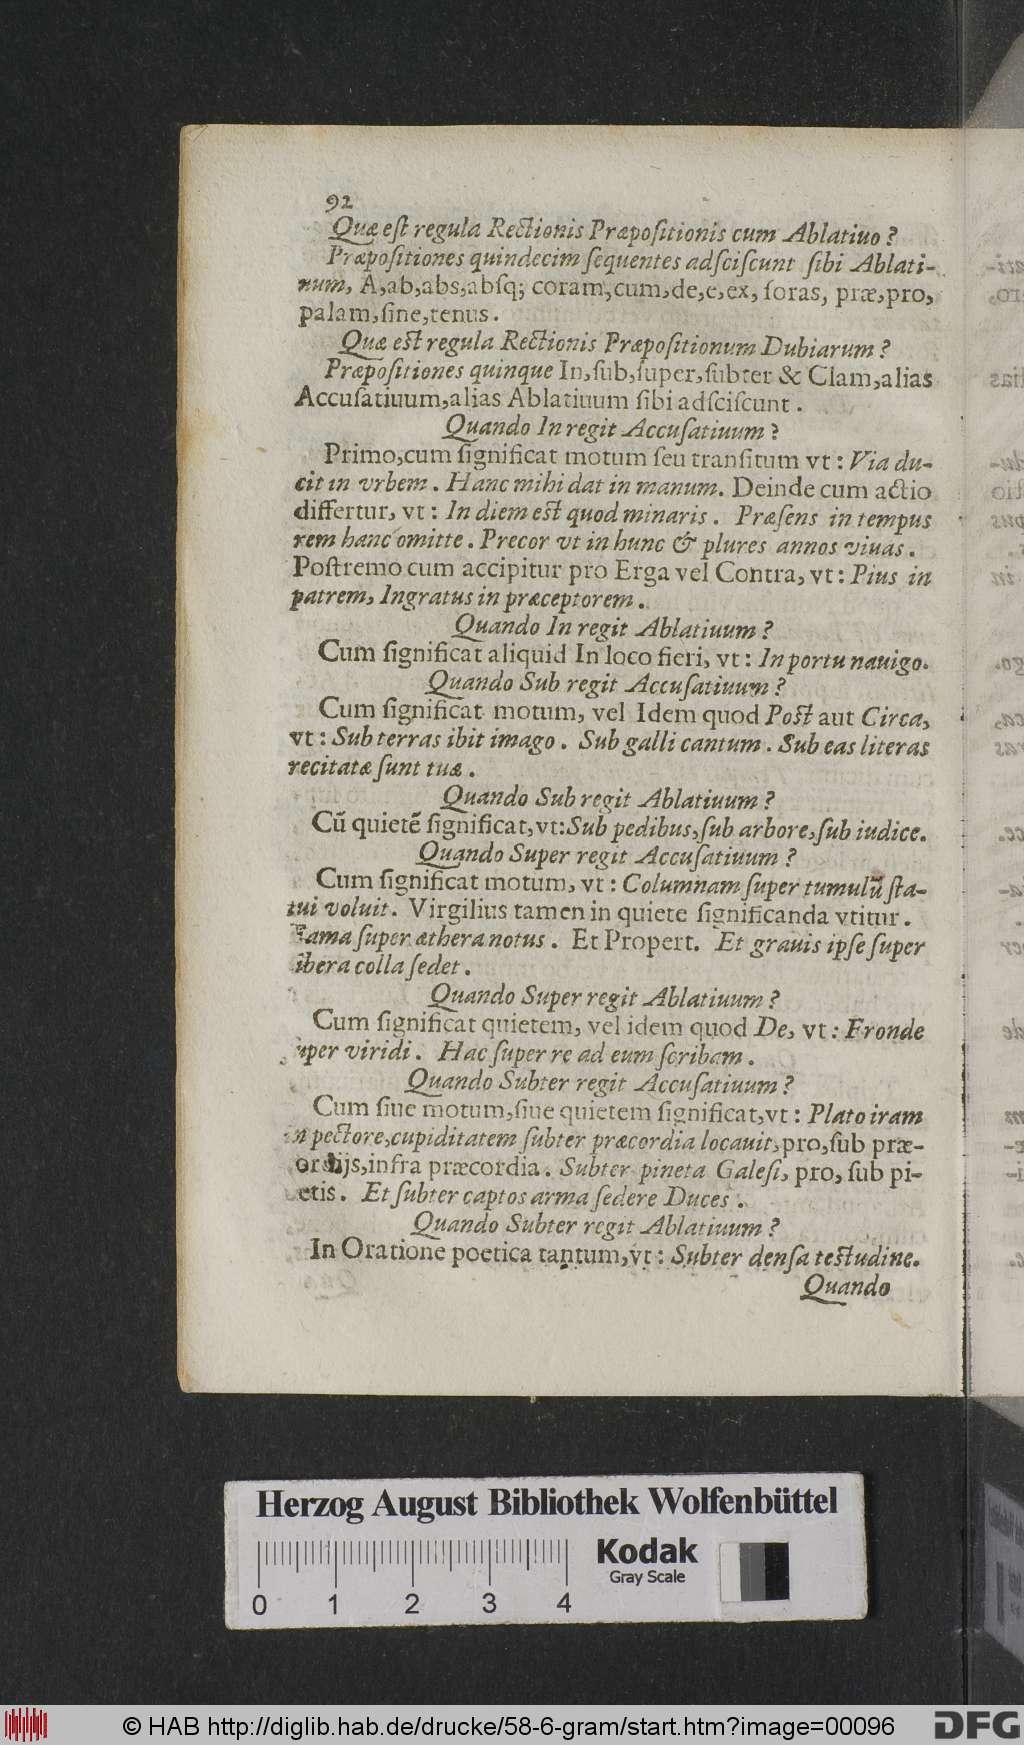 92
Quæ eſt regula Rectionis Præpoſitionis cum Ablatiuo ?
Præpoſitiones quindecim ſequentes adſciſcunt ſibi Ablati-
num, A,ab,abs,abſq; coram,cum,de,e,ex, foras, præ,pro,
palam,ſine,tenus.
Quæ eſt regula Rectionis Præpoſitionum Dubiarum ?
Præpoſitiones quinque In,ſub,ſuper,ſubter & Clam,alias
Accuſatiuum,alias Ablatiuum ſibi adſciſcunt.
Quando In regit Accuſatiuum ?
Primo,cum ſignificat motum ſeu tranſitum vt : Via du-
cit in vrbem. Hanc mihi dat in manum. Deinde cum actio
differtur, vt : In diem eſt quod minaris. Præſens in tempus
rem hanc omitte. Precor vt in hunc & plures annos viuas.
Poſtremo cum accipitur pro Erga vel Contra, vt : Pius in
patrem, Ingratus in præceptorem.
Quando In regit Ablatiuum ?
Cum ſignificat aliquid In loco fieri, vt : In portu nauigo.
Quando Sub regit Accuſatiuum ?
Cum ſignificat motum, vel Idem quod Poſt aut Circa,
vt : Sub terras ibit imago. Sub galli cantum. Sub eas literas
recitatæ ſunt tuæ.
Quando Sub regit Ablatiuum ?
Cū quietē ſignificat,vt:Sub pedibus,ſub arbore,ſub iudice.
Quando Super regit Accuſatiuum ?
Cum ſignificat motum, vt : Columnam ſuper tumulū ſta-
tui voluit. Virgilius tamen in quiete ſignificanda vtitur.
Fama ſuper æthera notus. Et Propert. Et grauis ipſe ſuper
ibera colla ſedet.
Quando Super regit Ablatiuum ?
Cum ſignificat quietem, vel idem quod De, vt : Fronde
uper viridi. Hac ſuper re ad eum ſcribam.
Quando Subter regit Accuſatiuum ?
Cum ſiue motum,ſiue quietem ſignificat,vt : Plato iram
in pectore,cupiditatem ſubter præcordia locauit,pro,ſub præ-
ordijs,infra præcordia. Subter pineta Galeſi, pro, ſub pi-
etis. Et ſubter captos arma ſedere Duces.
Quando Subter regit Ablatiuum ?
In Oratione poetica tantum,vt : Subter denſa teſtudine.
Quando
Herzog August Bibliothek Wolfenbüttel
Kodak
Gray Scale
0 1 2 3 4
© HAB http://diglib.hab.de/drucke/58-6-gram/start.htm?image=00096
DFG